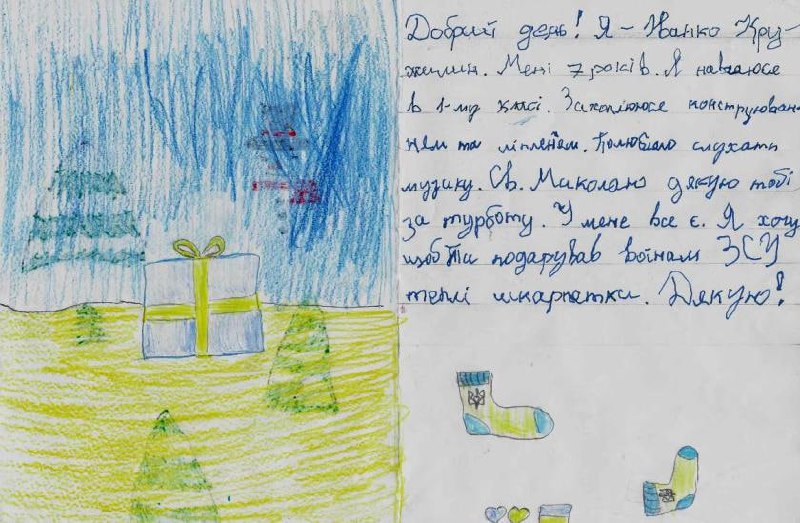 Добрий день! Я - Іванко Кру-
жилин. Мені 7 років. Я навчаюсь
в 1-му класі. Захоплююсь конструюван-
ням та ліпленням. Полюбляю слухать
музику. Св. Миколаю дякую тобі
за турботу. У мене все є. Я хочу
щоб Ти подарував воїнам ЗСУ
теплі шкарпетки. Дякую!